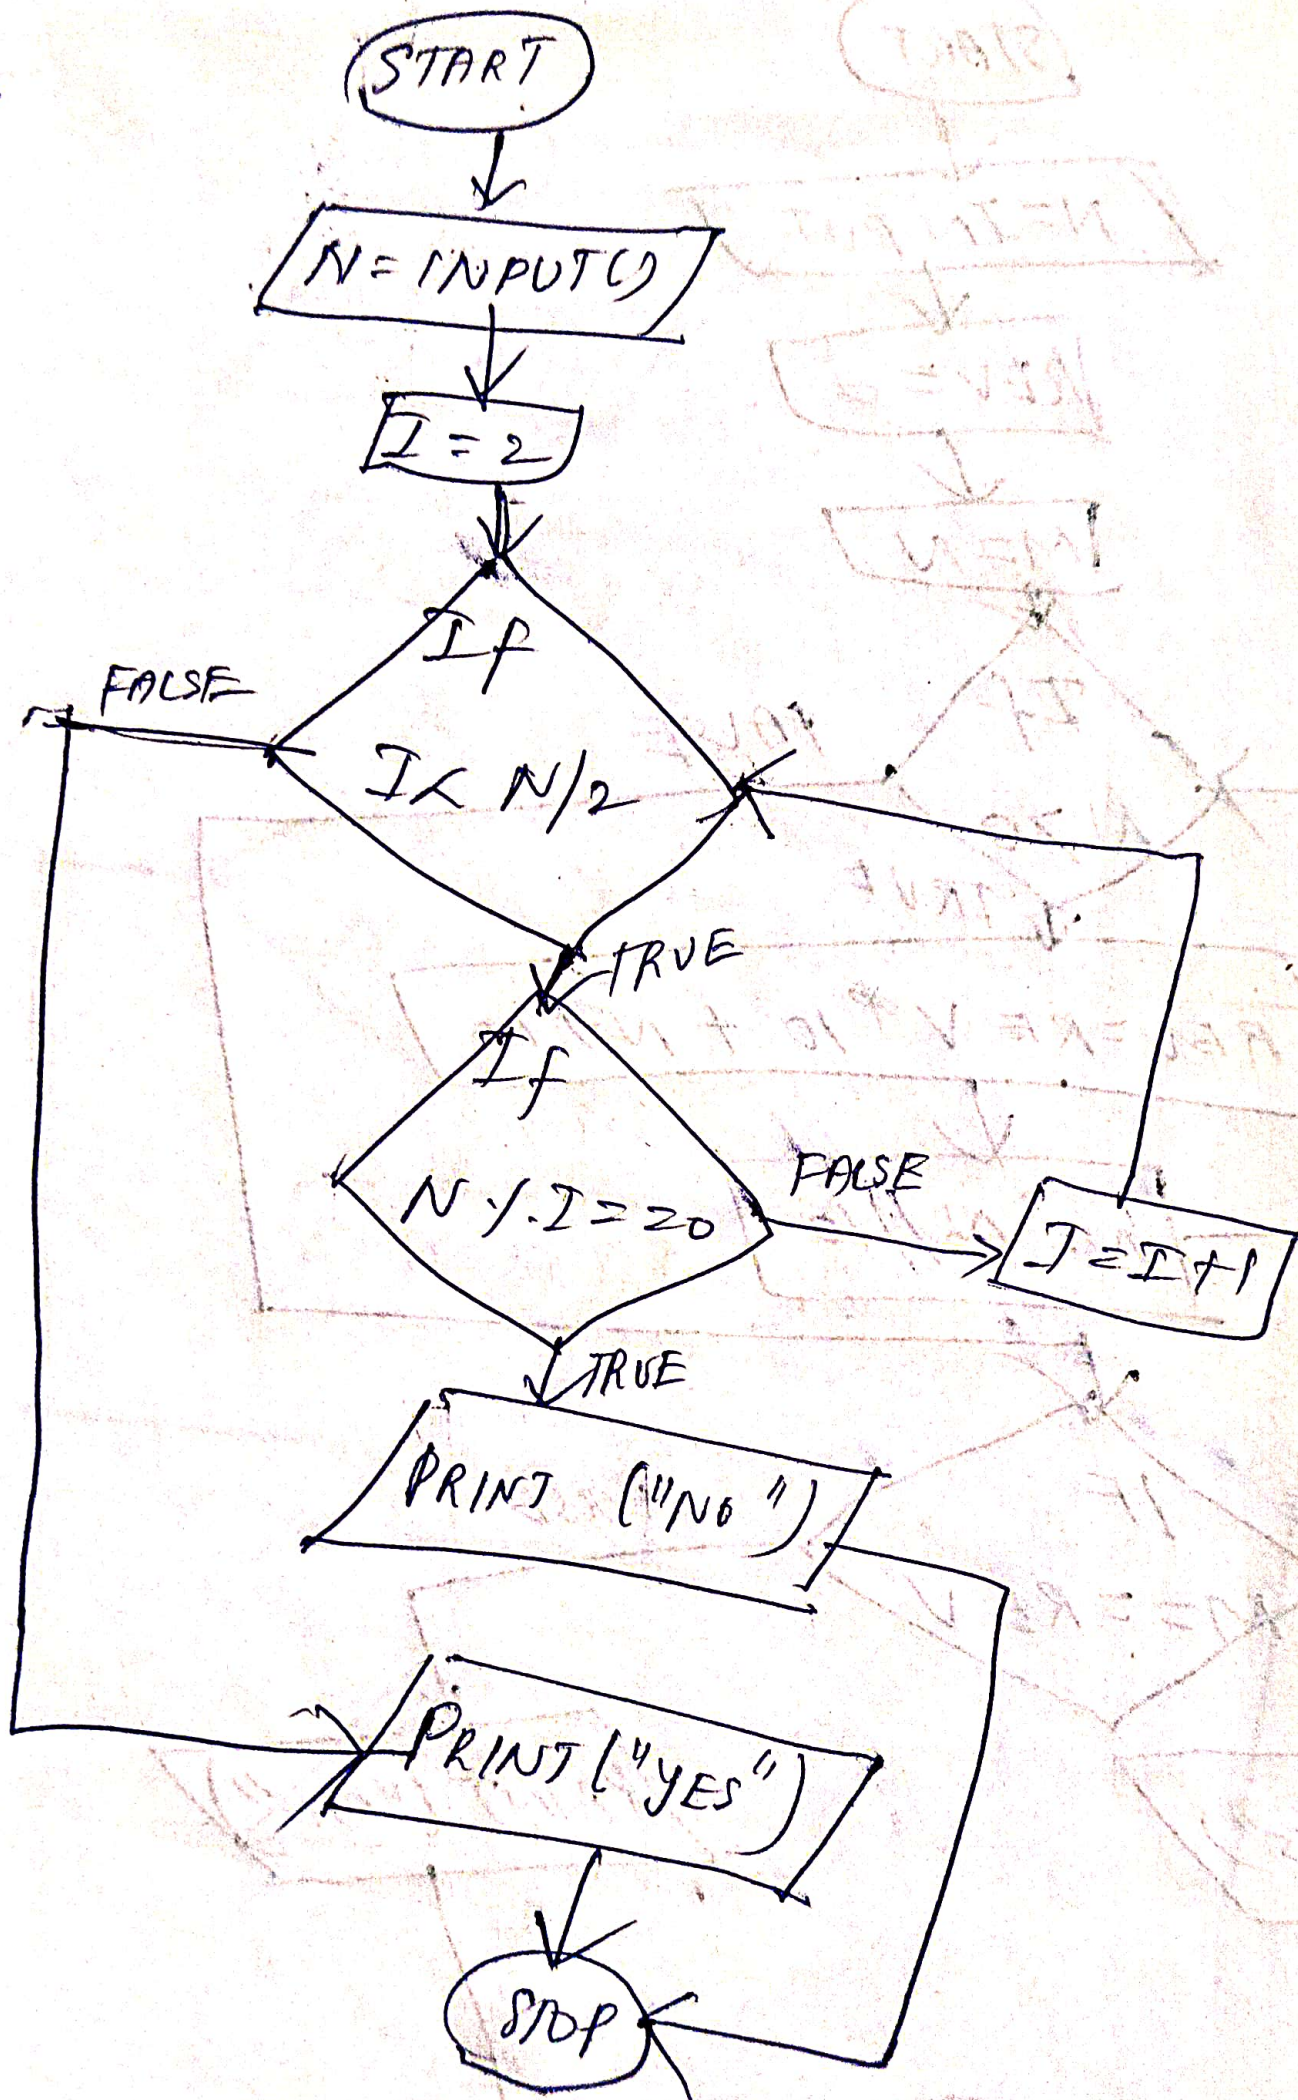 START
N = INPUT()
I = 2
If
FALSE
I < N/2
TRUE
If
FALSE
N % I == 0
I = I + 1
TRUE
PRINT ("NO")
PRINT ("YES")
STOP